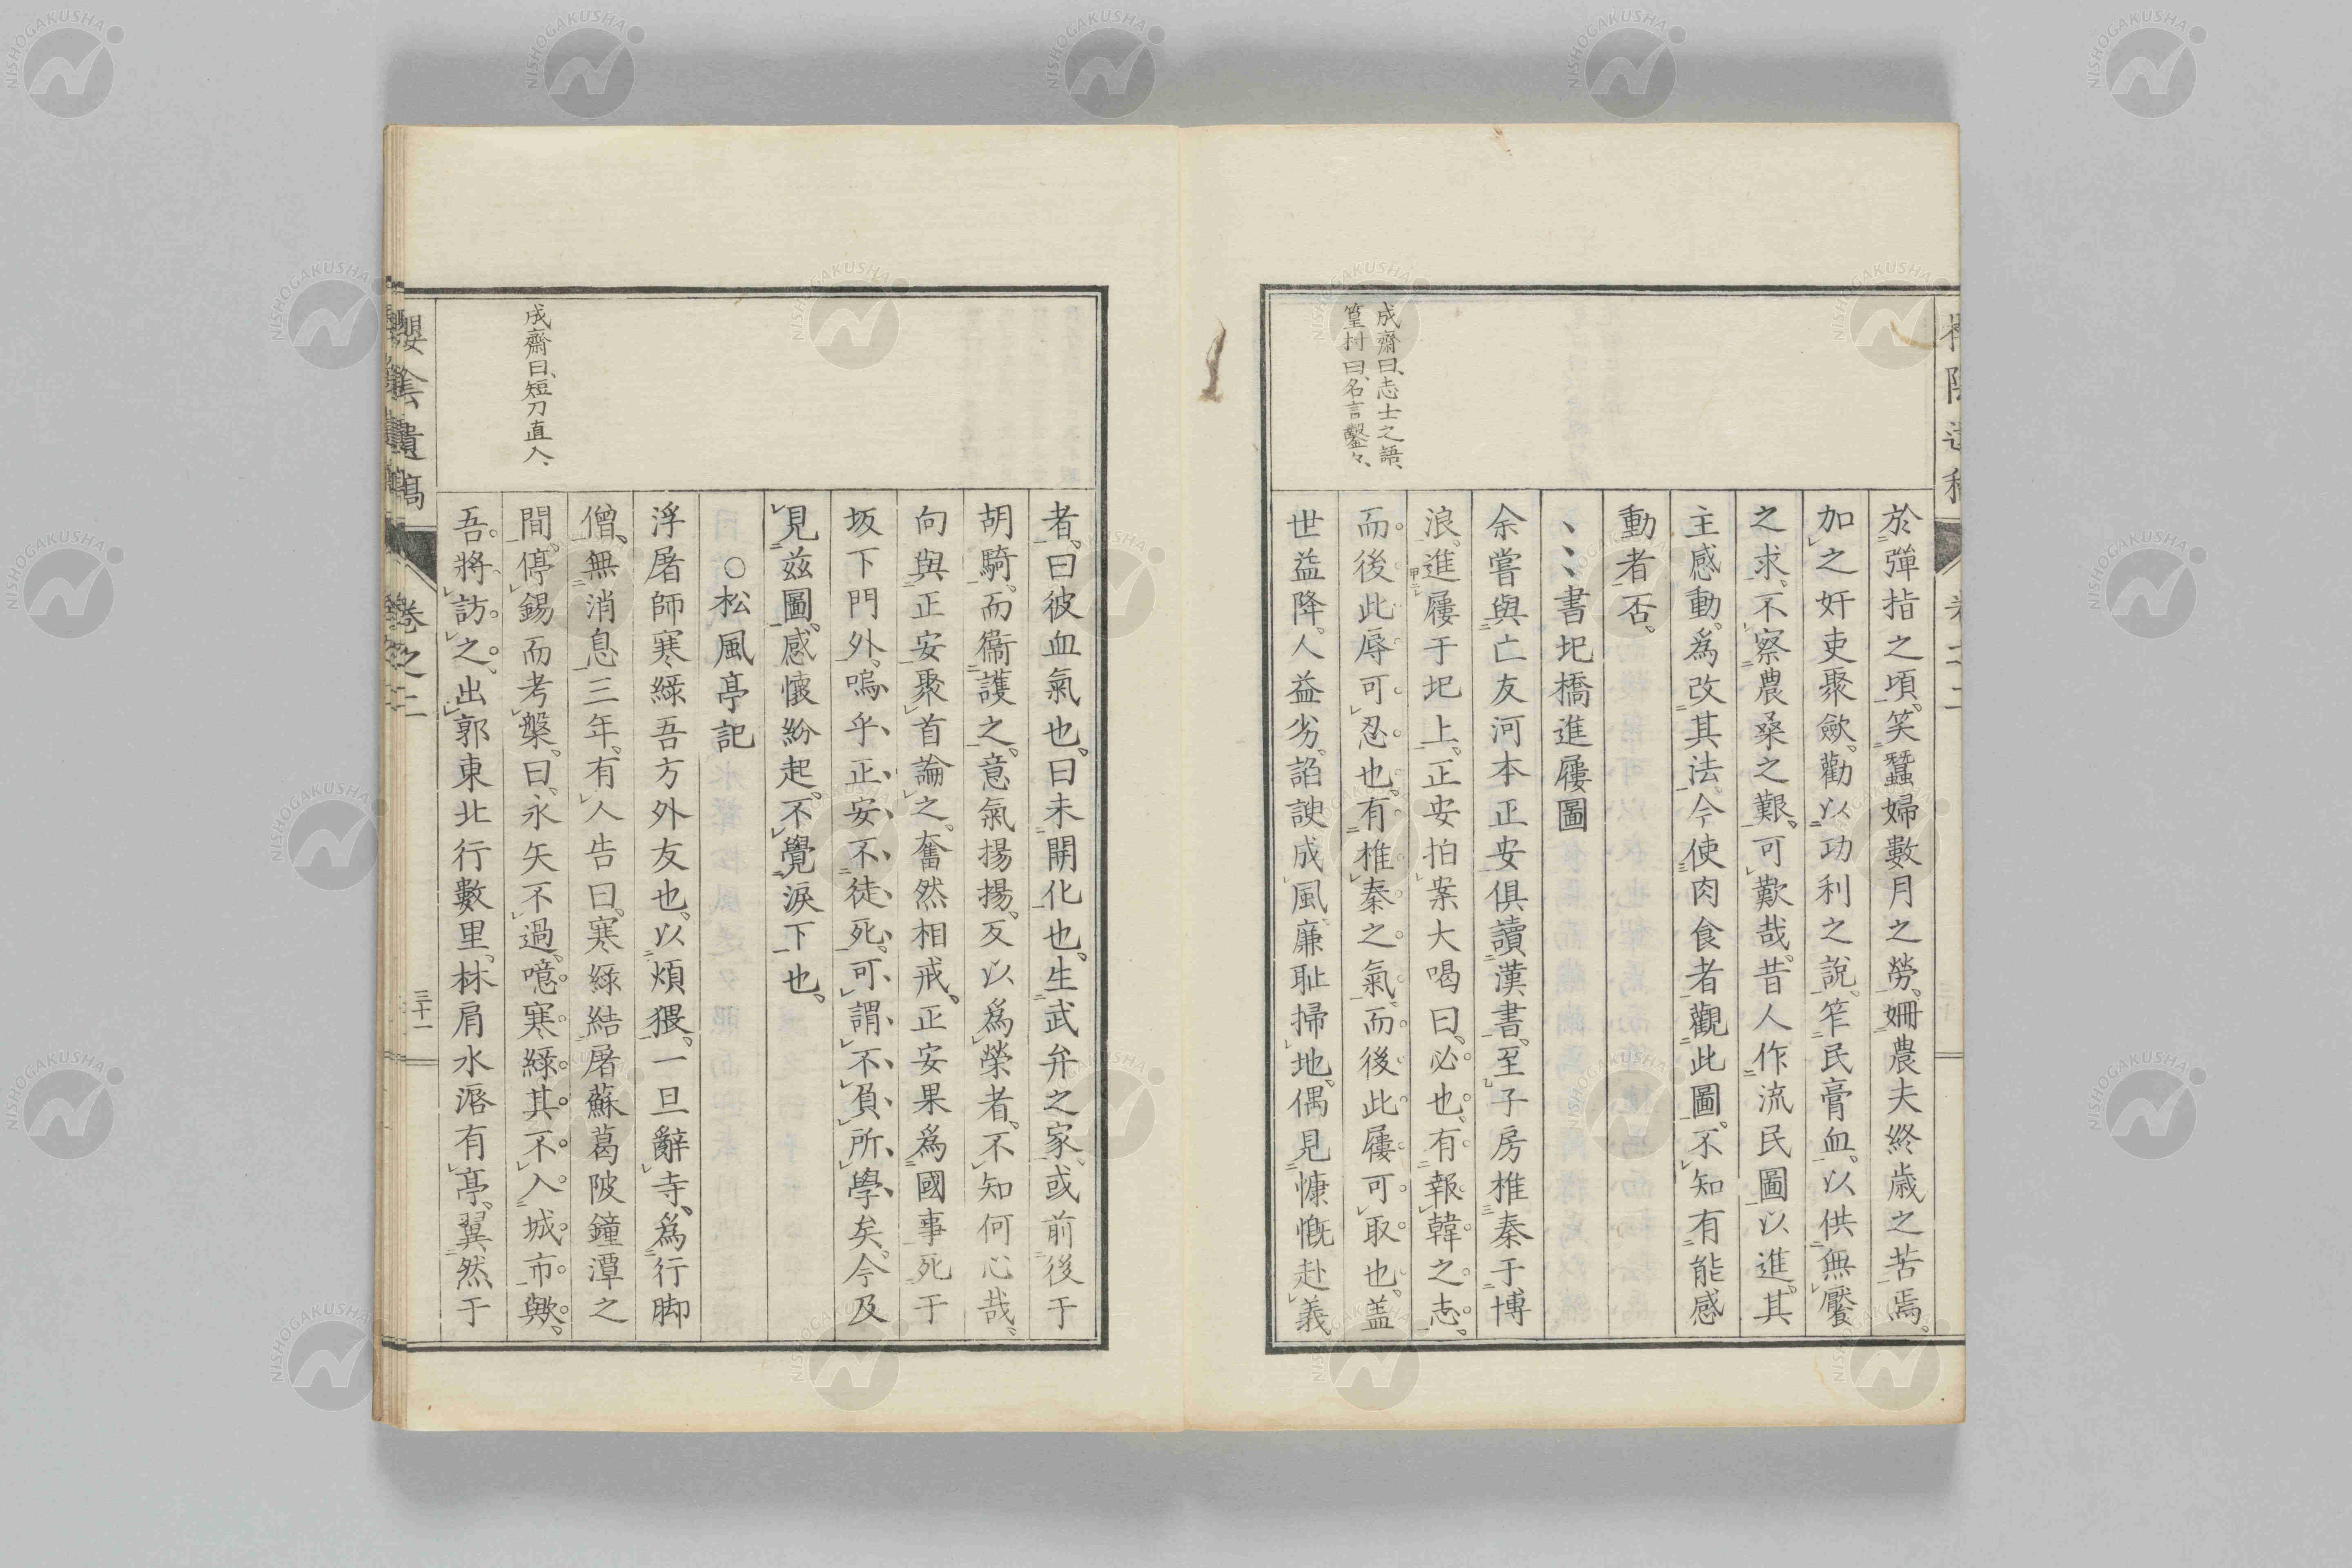 於彈指之頃。笑蠶婦數月之勞。姍農夫終歲之苦焉。
加之奸吏聚斂。勸以功利之說。笮民膏血。以供無饜
之求。不察農桑之艱。可歎哉。昔人作流民圖以進。其
主感動。爲改其法。今使肉食者觀此圖。不知有能感
動者否。
、、、書圯橋進屨圖
余嘗與亡友河本正安俱讀漢書。至子房椎秦于博
浪。進屨于圯上。正安拍案大喝曰。必也。有報韓之志。
而後此辱可忍也。有椎秦之氣。而後此屨可取也。盖
世益降。人益劣。諂諛成風。廉耻掃地。偶見慷慨赴義
成齋曰、志士之語、
篁村曰、名言鑿々、
者。曰彼血氣也。曰未開化也。生武弁之家。或前後于
胡騎。而衞護之。意氣揚揚。反以爲榮者。不知何心哉。
向與正安聚首論之。奮然相戒。正安果爲國事死于
坂下門外。嗚乎、正安不徒死。可謂不負所學矣。今及
見茲圖。感懷紛起。不覺淚下也。
○松風亭記
浮屠師寒綠吾方外友也。以煩猥。一旦辭寺。爲行脚
僧。無消息三年。有人告曰。寒綠結屠蘇葛陂鐘潭之
間。停錫而考槃。曰。永矢不過。噫寒綠其不入城市歟。
吾將訪之。出郭東北行數里。林肩水漘有亭。翼然于
成齋曰、短刀直入、
櫻陰遺稿
卷之二
三十一
NISHOGAKUSHA